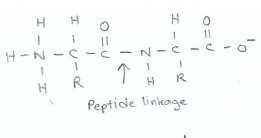 H H O H O
H-N-C-C-N-C-C-O⁻
H R H R
Peptide linkage